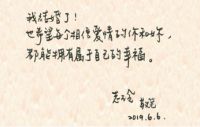 我结婚了！
也希望每个相信爱情的你和她，
都能拥有属于自己的幸福。
敬挽
2019.6.6.